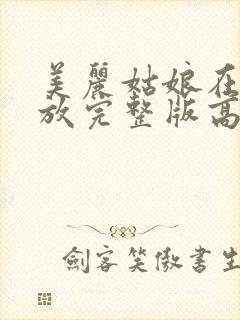 美麗姑娘在
放完整版高
劍客笑傲書生